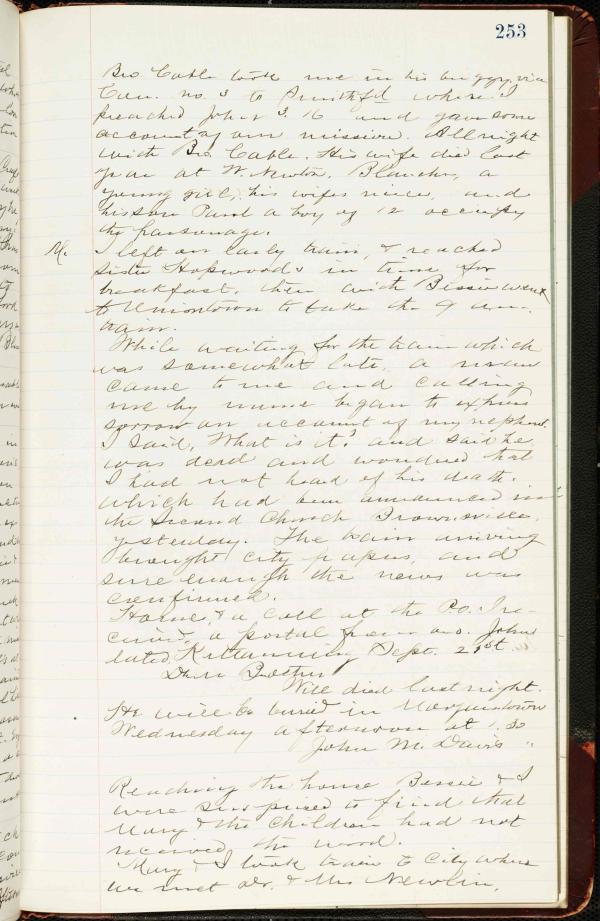 253
Bro Cable took me in his buggy, via
Cen. no. 3 to Smithfd where I
preached John 3. 16 and gave some
account of our mission. All night
with Bro Cable. His wife died last
year at W. Newton. Blanche, a
young girl, his wifes niece, and
his son Paul a boy of 12 occupy
the parsonage.
M. I left on early train, & reached
Sister Hopwoods in time for
breakfast, then with Bessie went
to Uniontown to take the 9 am.
train.
While waiting for the train which
was somewhat late, a man
came to me and calling
me by name began to express
sorrow on account of my nephew.
I said, What is it? and said he
was dead and wondered that
I had not heard of his death.
which had been announced in
the Second Church Brownsville,
yesterday. The train arriving
brought city papers, and
sure enough the news was
confirmed.
Home, & a call at the P.O. I re-
ceived a postal from bro. John
dated, Kittanning Sept. 21st
Dear Brother
Will died last night.
He will be buried in Morgantown
Wednesday afternoon at 1.30
John M. Davis "
Reaching the house Bessie & I
were surprised to find that
Mary & the children had not
received the word.
Mary & I took train to City where
we met Dr. & Mrs Newlin,